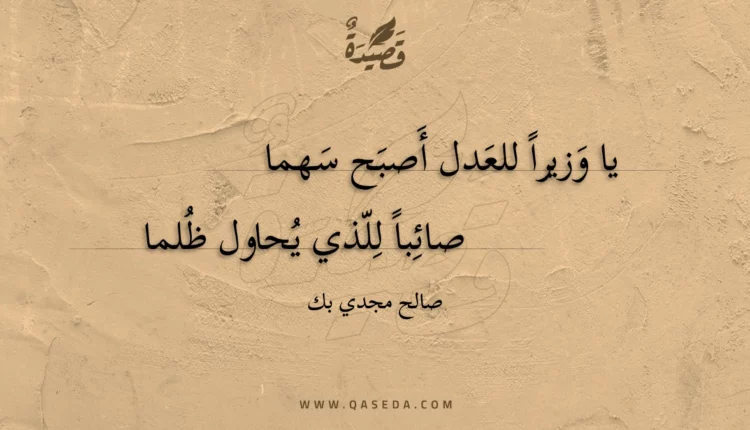 قَصِيْدَةٌ
يا وَزيراً للعَدل أَصبَح سَهما
صائِباً لِلّذي يُحاول ظُلما
صالح مجدي بك
WWW.QASEDA.COM